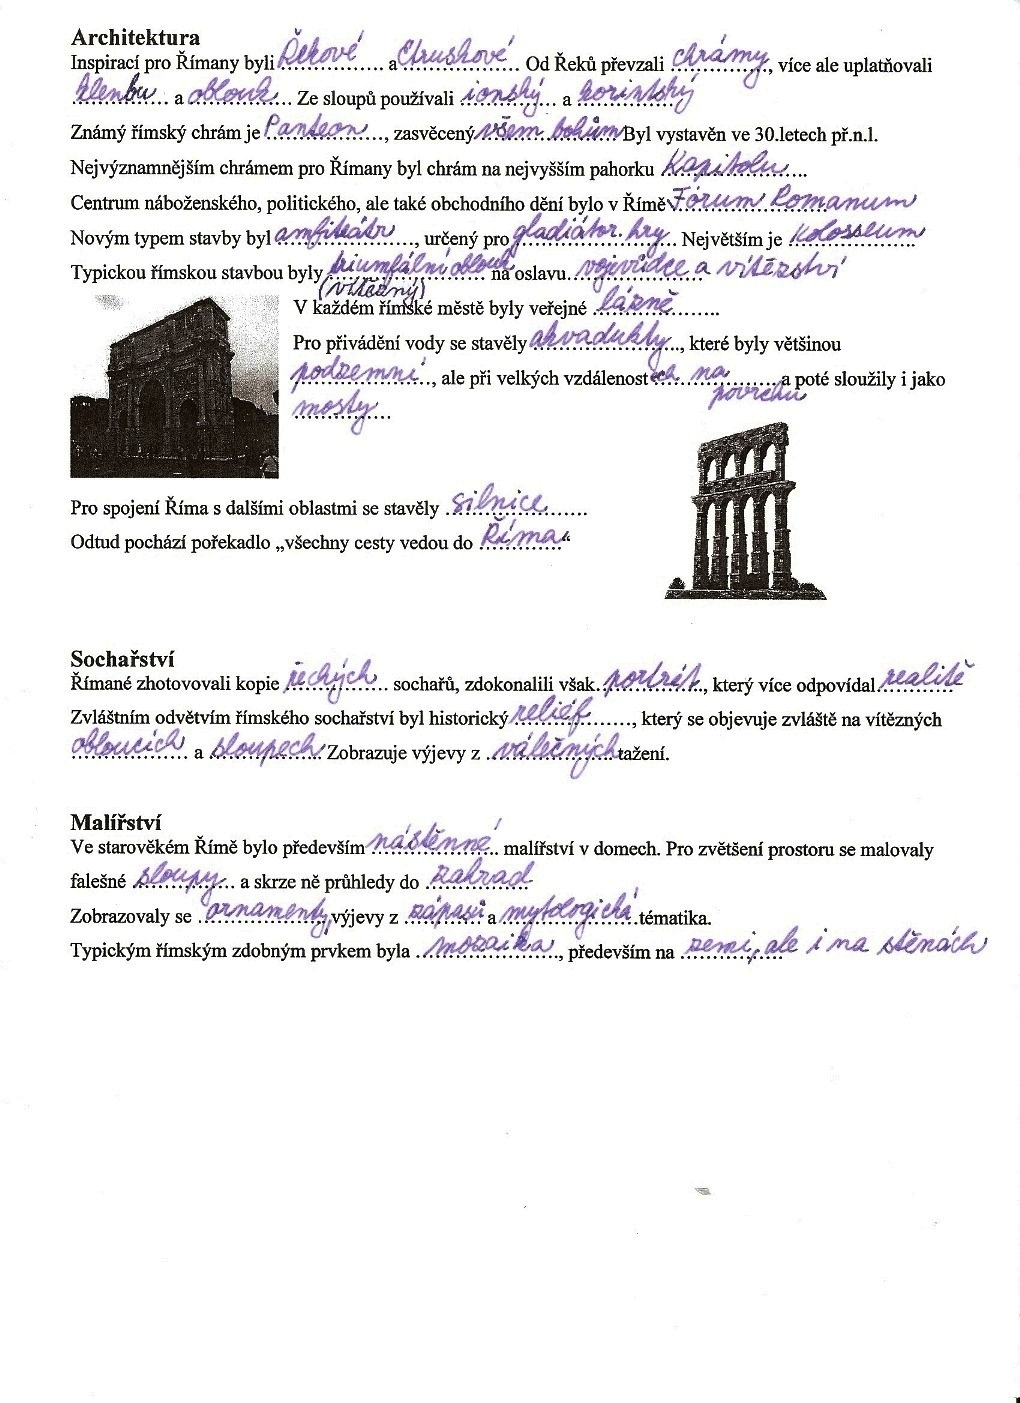 Architektura
Inspirací pro Římany byli Řekové a Etruskové. Od Řeků převzali chrámy, více ale uplatňovali
klenbu a oblouk. Ze sloupů používali ionský a korintský
Známý římský chrám je Panteon, zasvěcený všem bohům Byl vystavěn ve 30.letech př.n.l.
Nejvýznamnějším chrámem pro Římany byl chrám na nejvyšším pahorku Kapitolu
Centrum náboženského, politického, ale také obchodního dění bylo v Římě Fórum Romanum
Novým typem stavby byl amfiteátr, určený pro gladiátor. hry. Největším je Kolosseum
Typickou římskou stavbou byly triumfální oblouk na oslavu vojevůdce a vítězství
(vítězný)
V každém římské městě byly veřejné lázně
Pro přivádění vody se stavěly akvadukty, které byly většinou
podzemní, ale při velkých vzdálenostech na povrchu a poté sloužily i jako
mosty
Pro spojení Říma s dalšími oblastmi se stavěly silnice
Odtud pochází pořekadlo „všechny cesty vedou do Říma“
Sochařství
Římané zhotovovali kopie řeckých sochařů, zdokonalili však portrét, který více odpovídal realitě
Zvláštním odvětvím římského sochařství byl historický reliéf, který se objevuje zvláště na vítězných
obloucích a sloupech Zobrazuje výjevy z válečných tažení.
Malířství
Ve starověkém Římě bylo především nástěnné malířství v domech. Pro zvětšení prostoru se malovaly
falešné sloupy a skrze ně průhledy do zahrad
Zobrazovaly se ornamenty, výjevy z zápasů a mytologická tématika.
Typickým římským zdobným prvkem byla mozaika, především na zemi, ale i na stěnách